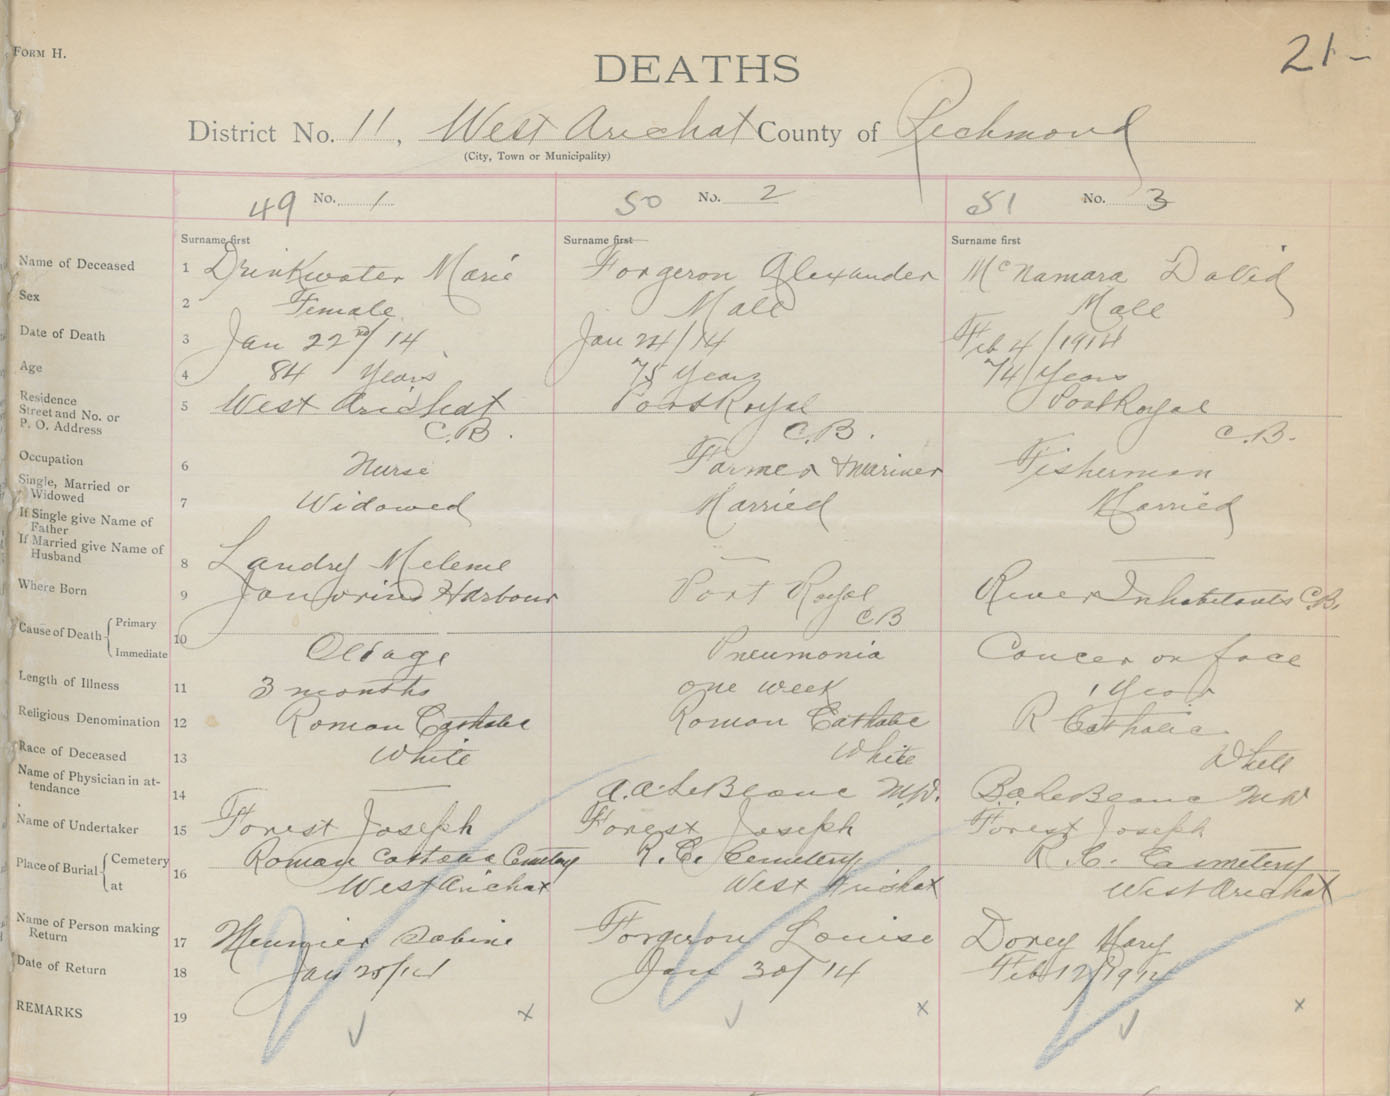 FORM H.
21-
DEATHS
District No. 11, West Arichat County of Richmond
(City, Town or Municipality)
49 No. 1 50 No. 2 51 No. 3
Surname first Surname first Surname first
Name of Deceased 1 Drinkwater Marie Forgeron Alexander McNamara David
Sex 2 Female Male Male
Date of Death 3 Jan 22nd/14 Jan 24/14 Feb 4/1914
Age 4 84 Years 75 Years 74 Years
Residence
Street and No. or
P. O. Address
5 West Arichat Port Royal Port Royal
C.B. C.B. C.B.
Occupation 6 Nurse Farmer & Mariner Fisherman
Single, Married or
Widowed
7 Widowed Married Married
If Single give Name of
Father
If Married give Name of
Husband
8 Landry — —
Where Born 9 Janvrins Harbour Port Royal River Inhabitants C.B.
C B
Cause of Death Primary
Immediate
10 Old age Pneumonia Cancer on face
Length of Illness 11 3 months one week 1 Year
Religious Denomination 12 Roman Catholic Roman Catholic R Catholic
Race of Deceased 13 White White White
Name of Physician in at-
tendance
14 — A.A. LeBlanc M.D. LeBlanc MD
Name of Undertaker 15 Forest Joseph Forest Joseph Forest Joseph
Place of Burial Cemetery
at
16 Roman Cemetery R. C. Cemetery R. C. Cemetery
West Arichat West Arichat West Arichat
Name of Person making
Return
17 Meunier Sabine Forgeron Louise Dorey Mary
Date of Return 18 Jan 30/14 Feb 12/1914
REMARKS 19 x x x